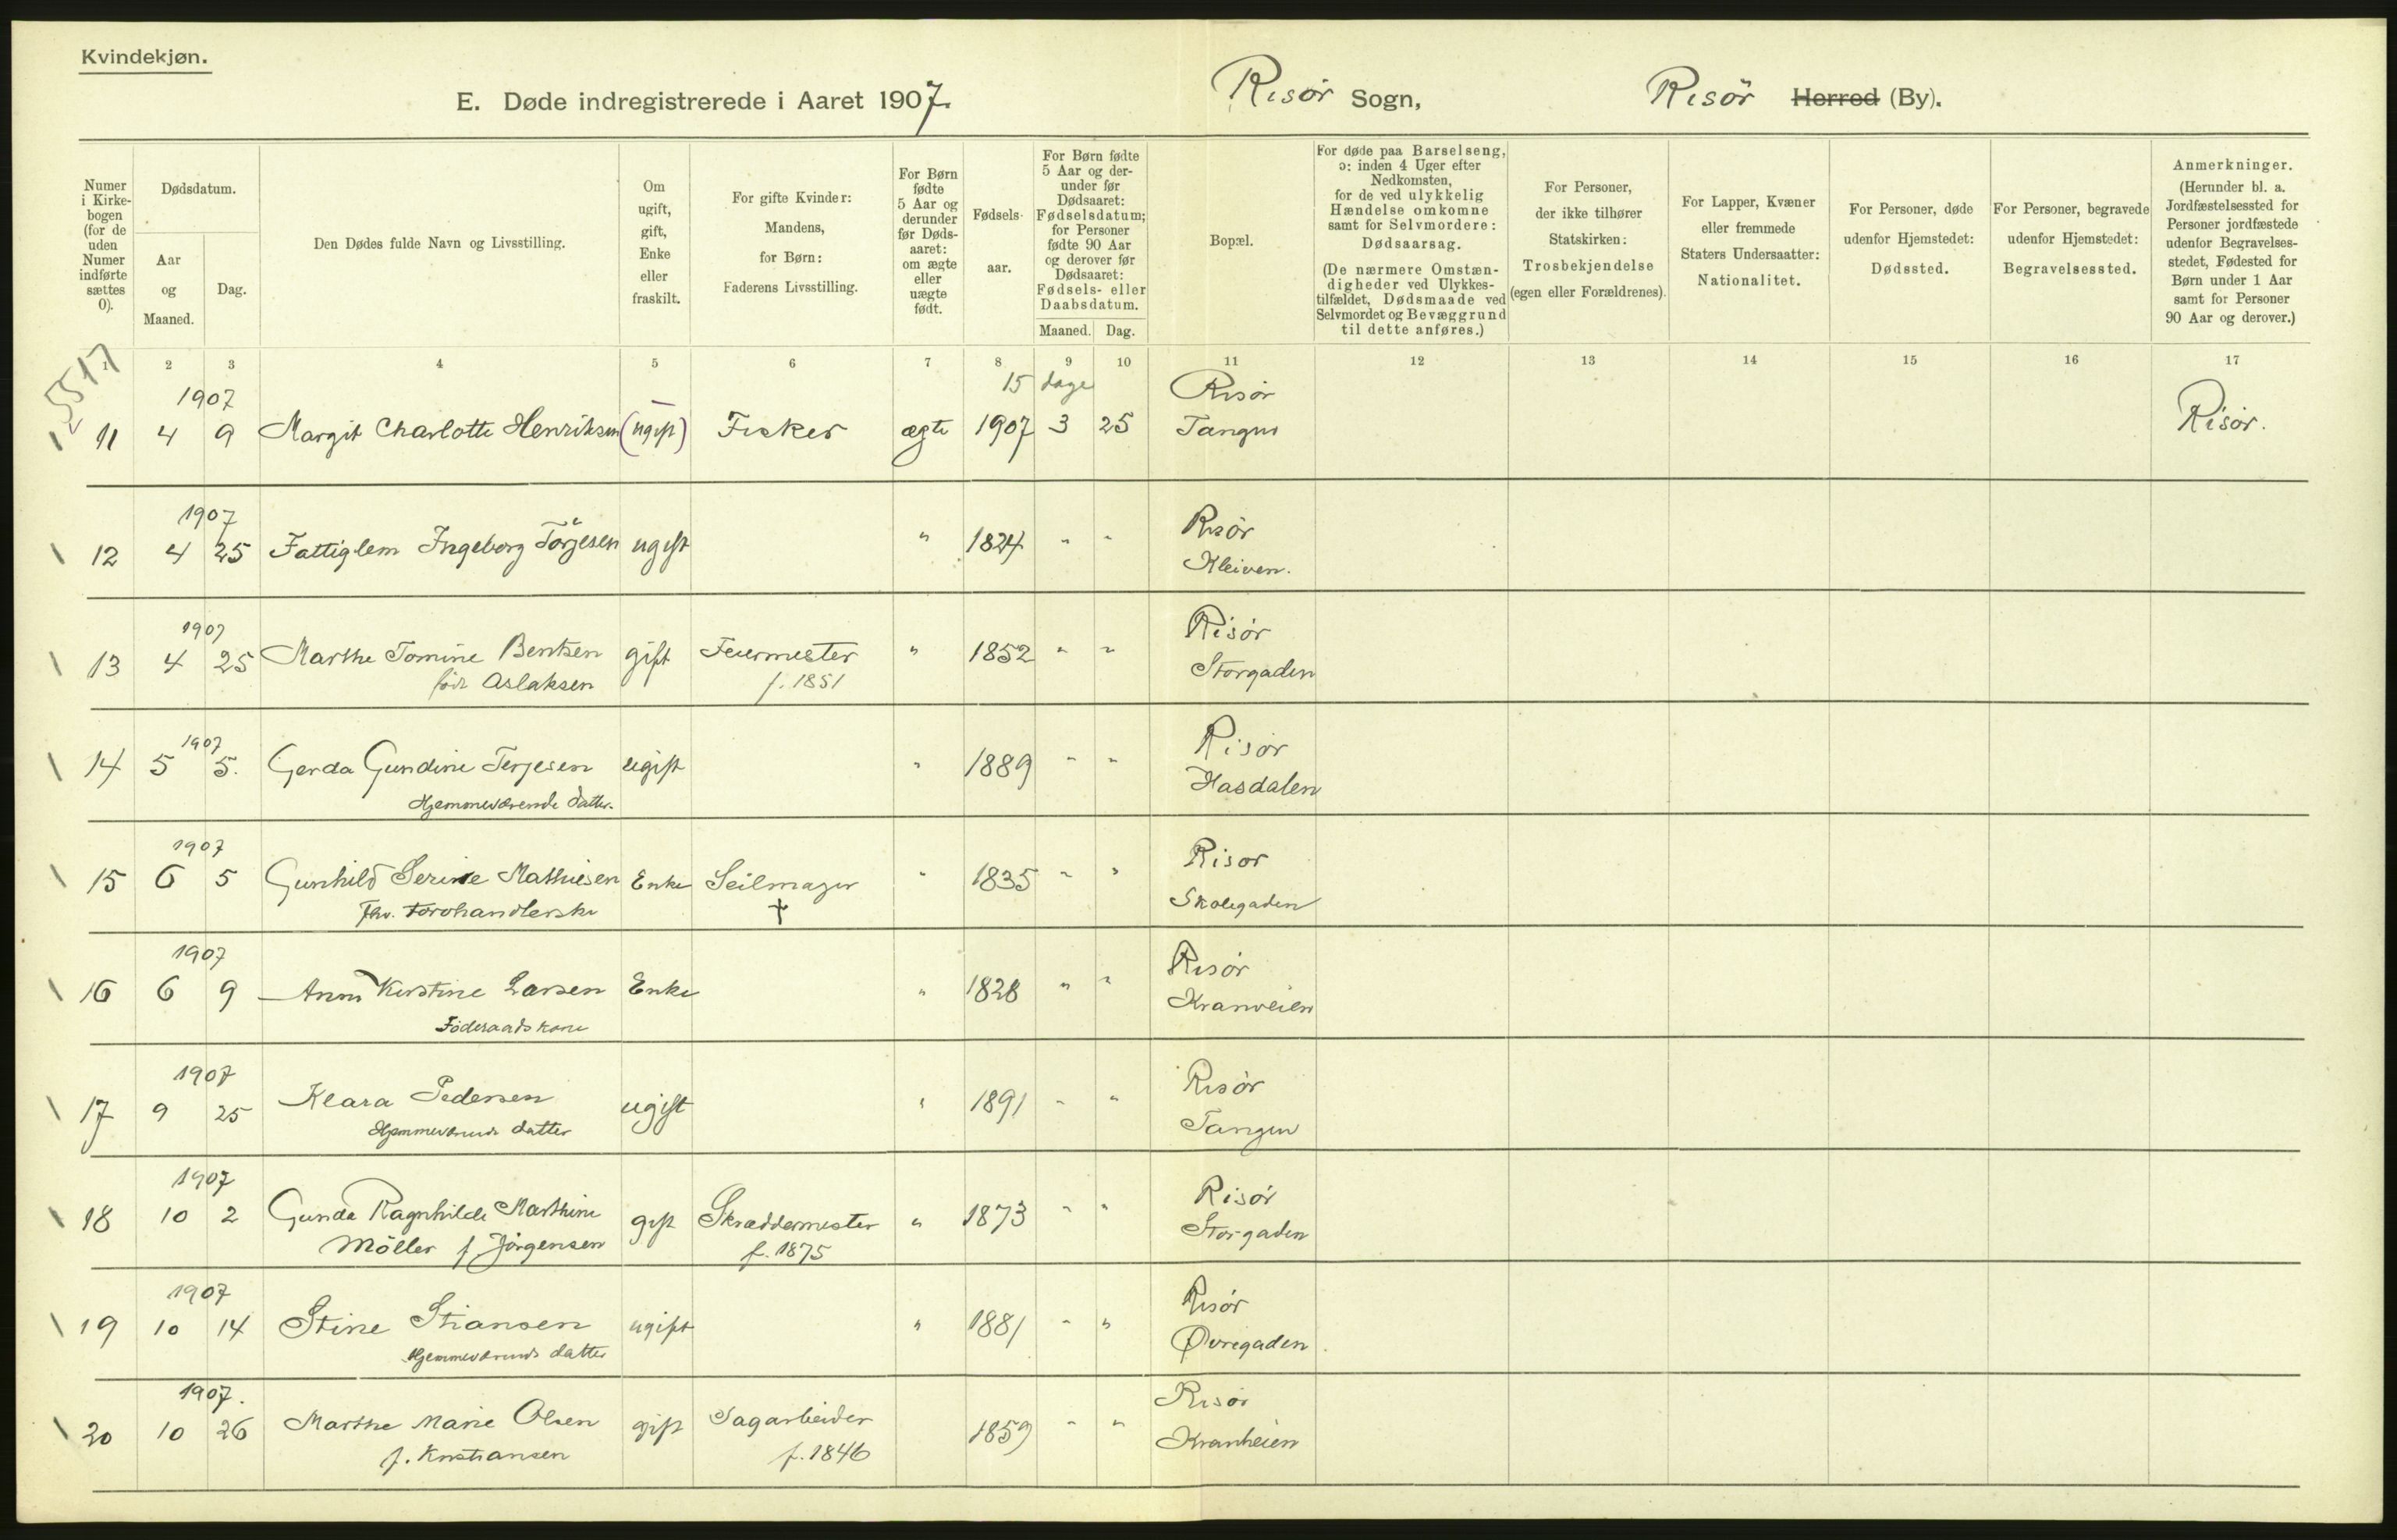 Kvindekjøn.
E. Døde indregistrerede i Aaret 1907. Risør Sogn, Risör Herred (By).
Numer i Kirke-bogen (for de uden Numer indførte sættes 0).
Dødsdatum.
Aar og Maaned.
Dag.
Den Dødes fulde Navn og Livsstilling.
Om ugift, gift, Enke eller fraskilt.
For gifte Kvinder: Mandens, for Børn: Faderens Livsstilling.
For Børn fødte 5 Aar og derunder før Døds-aaret: om ægte eller uægte født.
Fødsels-aar.
For Børn fødte 5 Aar og der-under før Dødsaaret: Fødselsdatum; for Personer fødte 90 Aar og derover før Dødsaaret: Fødsels- eller Daabsdatum.
Maaned. Dag.
Bopæl.
For døde paa Barselseng, ɔ: inden 4 Uger efter Nedkomsten, for de ved ulykkelig Hændelse omkomne samt for Selvmordere: Dødsaarsag.
(De nærmere Omstæn-digheder ved Ulykkes-tilfældet, Dødsmaade ved Selvmordet og Bevæggrund til dette anføres.)
For Personer, der ikke tilhører Statskirken: Trosbekjendelse (egen eller Forældrenes).
For Lapper, Kvæner eller fremmede Staters Undersaatter: Nationalitet.
For Personer, døde udenfor Hjemstedet: Dødssted.
For Personer, begravede udenfor Hjemstedet: Begravelsessted.
Anmerkninger. (Herunder bl. a. Jordfæstelsessted for Personer jordfæstede udenfor Begravelses-stedet, Fødested for Børn under 1 Aar samt for Personer 90 Aar og derover.)
1 2 3 4 5 6 7 8 9 10 11 12 13 14 15 16 17
5517
1907 15 dage Risør
11 4 9 Margit Charlotte Henriksen (ugift) Fisker ægte 1907 3 25 Tangen Risør.
1907 Risör
12 4 25 Fattiglem Ingeborg Törjesen ugift " 1824 " " Kleiven.
1907 Risör
13 4 25 Marthe Tomine Bentsen gift Feiermester " 1852 " " Storgaden
född Aslaksen f. 1851
1907 Risör
14 5 5. Gerda Gundine Terjesen ugift " 1889 " " Hasdalen
Hjemmeværende datter.
1907 Risør
15 6 5 Gunhild Serine Mathiesen Enke Seilmager " 1835 " " Skolegaden
fhv. Torvhandlerske †
1907 Risör
16 6 9 Anne Kirstine Larsen Enke " 1828 " " Kranveien
Föderaadskone
1907 Risör
17 9 25 Klara Pedersen ugift " 1891 " " Tangen
Hjemmeværende datter
1907 Risör
18 10 2 Gunda Ragnhilde Marthine gift Skræddermester " 1873 " " Storgaden
Möller f. Jörgensen f. 1875
1907 Risör
19 10 14 Stine Stiansen ugift " 1881 " " Øvregaden
Hjemmeværende datter
1907. Risör
20 10 26 Marthe Marie Olsen gift Sagarbeider 1859 " " Kranheien
f. Kristiansen f. 1846